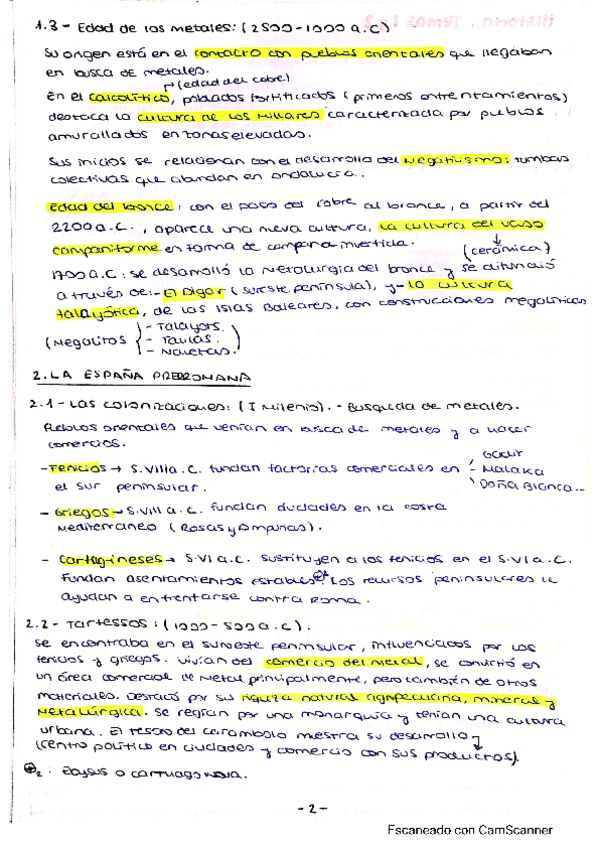 1.3 - Edad de los metales: (2500-1000 a.C)
Su origen está en el contacto con pueblos orientales que llegaban
en busca de metales.
↱(edad del cobre)
En el calcolítico, poblados fortificados (primeros entrentamientos)
destaca la cultura de los Millares caracterizada por pueblos
amurallados en zonas elevadas.
Sus inicios se relacionan con el desarrollo del Megatiusmo: tumbas
colectivas que abundan en andalucía.
Edad del bronce: con el paso del cobre al bronce, a partir del
2200 a.C., aparece una nueva cultura, la cultura del vaso
campaniforme en forma de campana invertida.
(cerámica)
1700 a.C: se desarrolló la metalurgia del bronce y se difundió
a través de: - El Algar (sureste península), y - la cultura
talayótica, de las Islas Baleares, con construcciones megolíticas
(Megolitos
- Talayots.
- Taulas.
- Navetas.)
2. LA ESPAÑA PRERROMANA
2.1 - Las colonizaciones: (I Milenio). - Busqueda de metales.
Pueblos orientales que venían en busca de metales y a hacer
comercios.
- Fenicios → S.VIII a.C. fundan factorías comerciales en
el sur peninsular.
- Gadir
- Malaka
- Doña Blanca..
- Griegos → S.VIII a.C. fundan ciudades en la costa
Mediterraneo (Rosas y Ampurias).
- Cartagineses → S.VI a.C. sustituyen a los fenicios en el S.VI a.C.
Fundan asentamientos estables. Los recursos peninsulares le
ayudan a enfrentarse contra Roma.
2.2 - Tartessos: (1000-500 a.C).
Se encontraba en el suroeste peninsular, influenciados por los
fenicios y griegos. Vivían del comercio del metal, se convirtió en
un área comercial de metal principalmente, pero también de otros
materiales. Destacó por su riqueza natural agropecuaria, minera y
metalúrgica. Se regían por una monarquía y tenían una cultura
urbana. El tesoro del carambolo muestra su desarrollo
(centro político en ciudades y comercio con sus productos).
2: Ebysus o Carthago Nova.
- 2 -
Escaneado con CamScanner